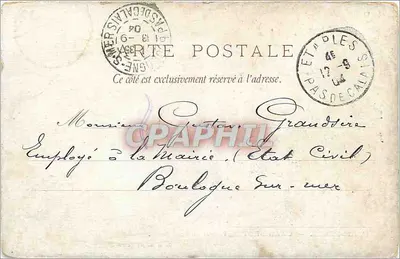 CARTE POSTALE
Ce côté est exclusivement réservé à l'adresse.
ETAPLES
4E
17-9
04
PAS DE CALAIS
S-MER
PAS DE CALAIS
18-9
04
Monsieur Gustave Grandsire
CPAPHIL
Employé à la Mairie (Etat Civil)
Boulogne sur-mer